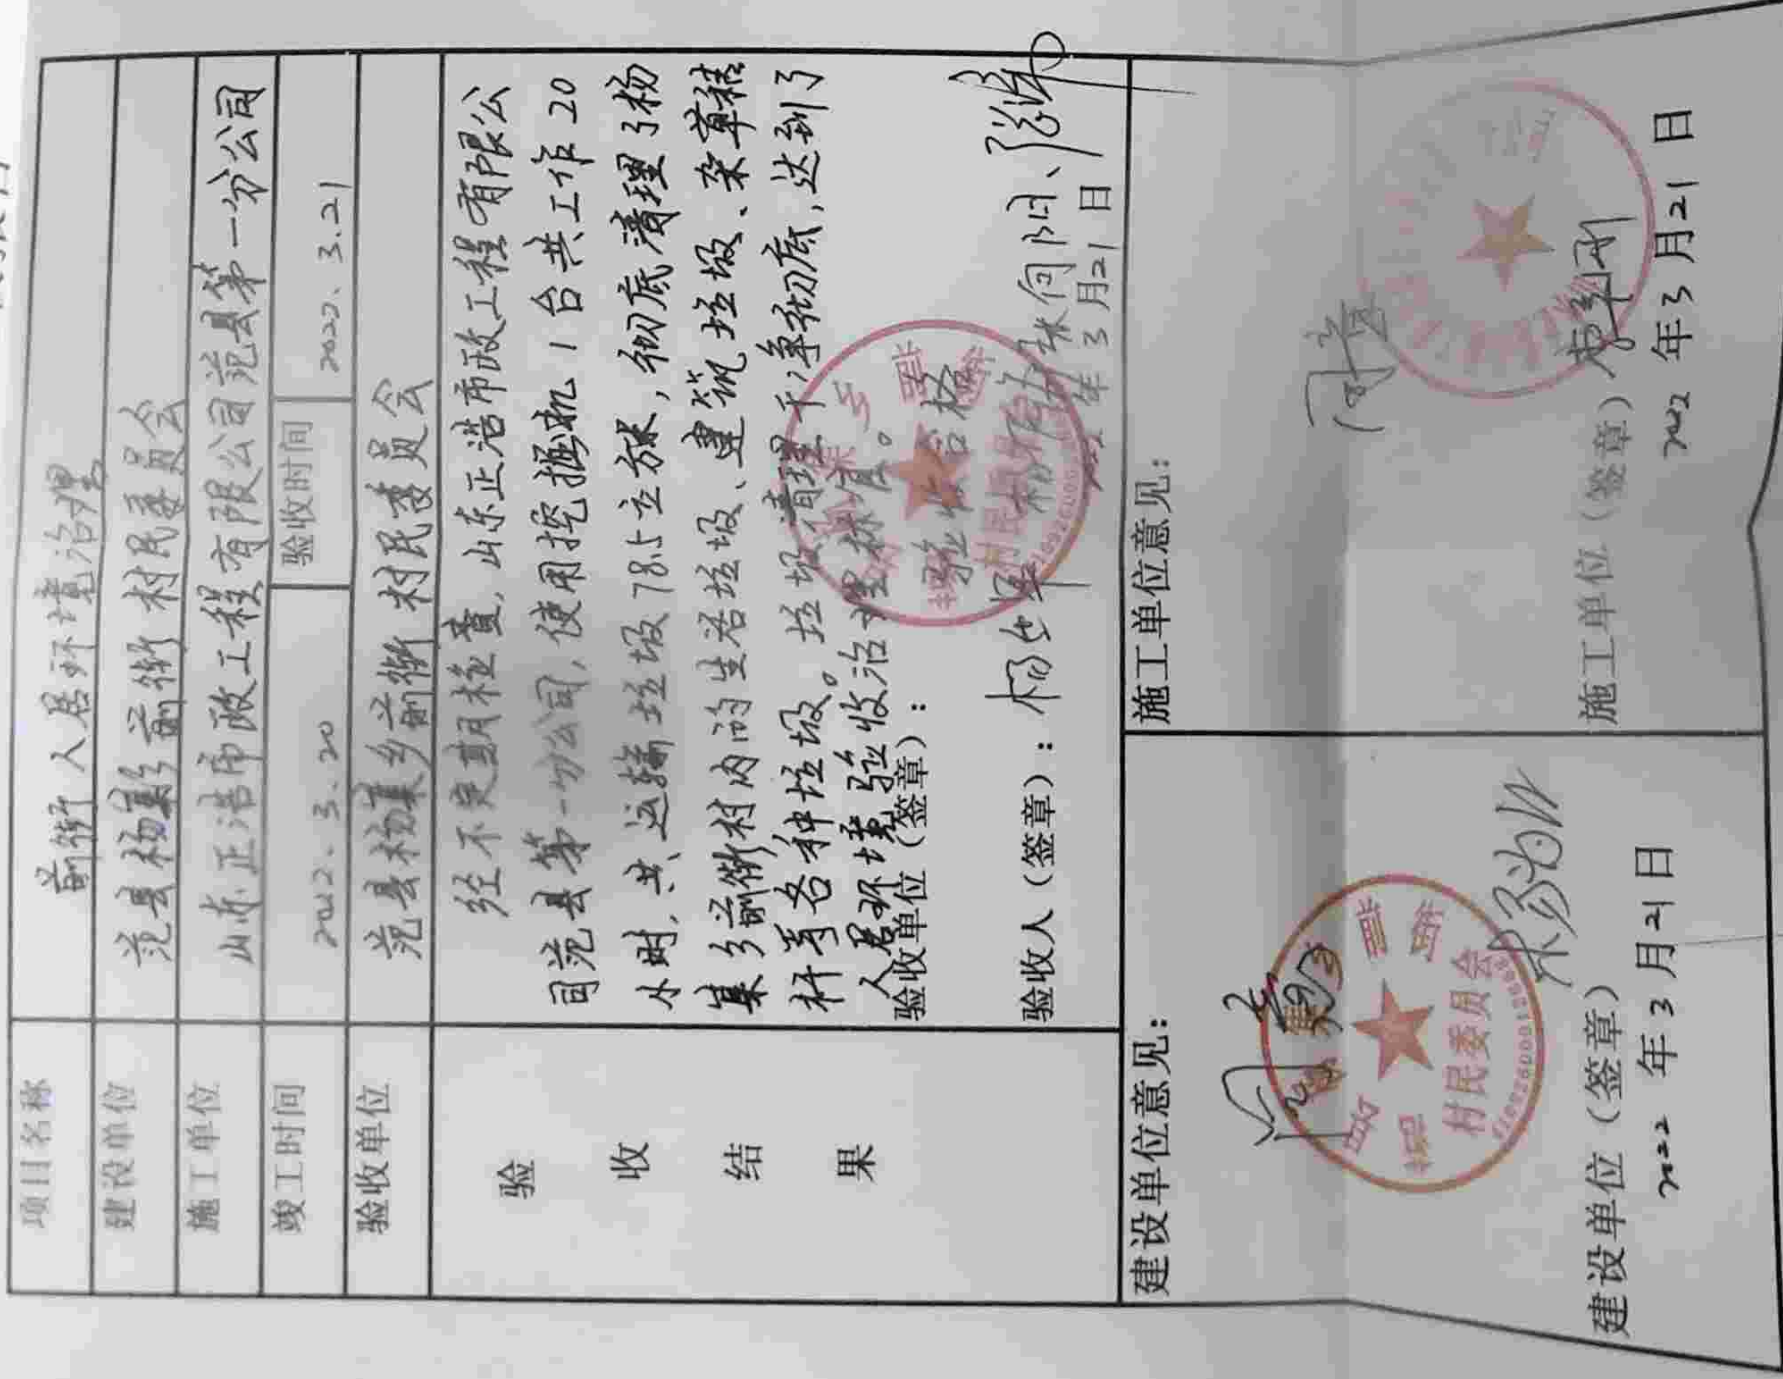 项目名称 前街人居环境治理
建设单位 范县杨集乡前街村民委员会
施工单位 山东正浩市政工程有限公司范县第一分公司
竣工时间 2022.3.20 验收时间 2022.3.21
验收单位 范县杨集乡前街村民委员会
验收结果
经不定期检查,山东正浩市政工程有限公
司范县第一分公司,使用挖掘机1台共工作20
小时,共运输垃圾785立方米,彻底清理了杨
集乡前街村内的生活垃圾、建筑垃圾、杂草秸
秆等各种垃圾。垃圾清理干净彻底,达到了
人居环境验收治理标准。
验收单位(签章): 验收合格
验收人(签章):
年3月21日
建设单位意见: 施工单位意见:
同意 同意
村民委员会
建设单位(签章) 施工单位(签章)
2022年3月21日 2022年3月21日